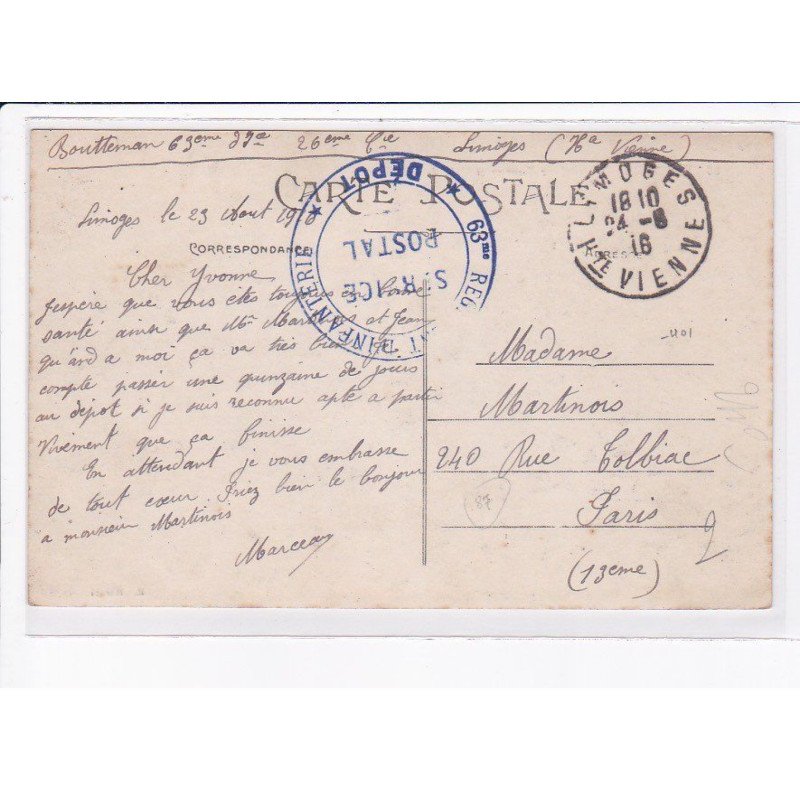 Boutteman 63eme Rgie 26eme Cie Limoges (Hte Vienne)
CARTE POSTALE
Limoges le 23 Aout 1916
CORRESPONDANCE
ADRESSE
63me REG D'INFANTERIE
★ DÉPÔT ★
SERVICE
POSTAL
LIMOGES
18 10
24 -8
16
Hte VIENNE
Cher Yvonne
J'espère que vous êtes toujours en bonne
santé ainsi que Mr Martinois et Jean
qu'ard a moi ça va très bien je
compte passer une quinzaine de jours
au dépot si je suis reconnu apte a partir
Vivement que ça finisse
En attendant je vous embrasse
de tout cœur. Friez bien le bonjour
a monsieur Martinois
Marceau
Madame
Martinois
240 Rue Tolbiac
Paris
(13eme)
87
2